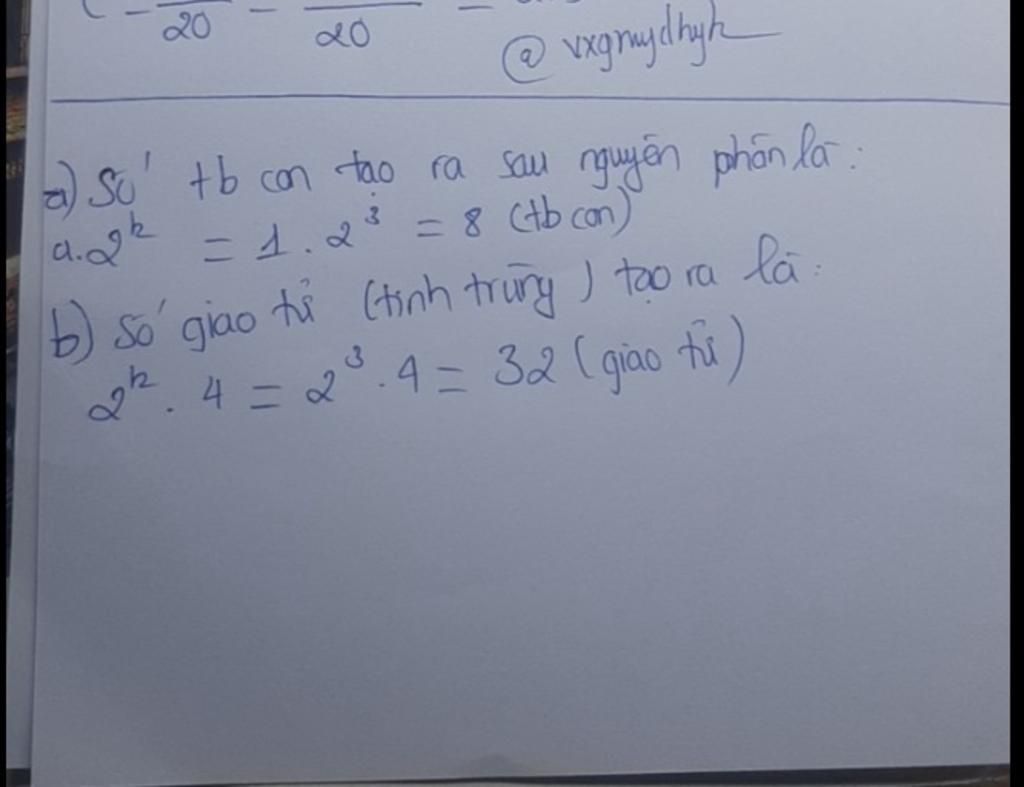 20 - 20 =
@ vxgmydhyh
a) Số tb con tạo ra sau nguyên phân là:
a.2^k = 1.2^3 = 8 (tb con)
b) Số giao tử (tinh trùng) tạo ra là:
2^k . 4 = 2^3 . 4 = 32 (giao tử)